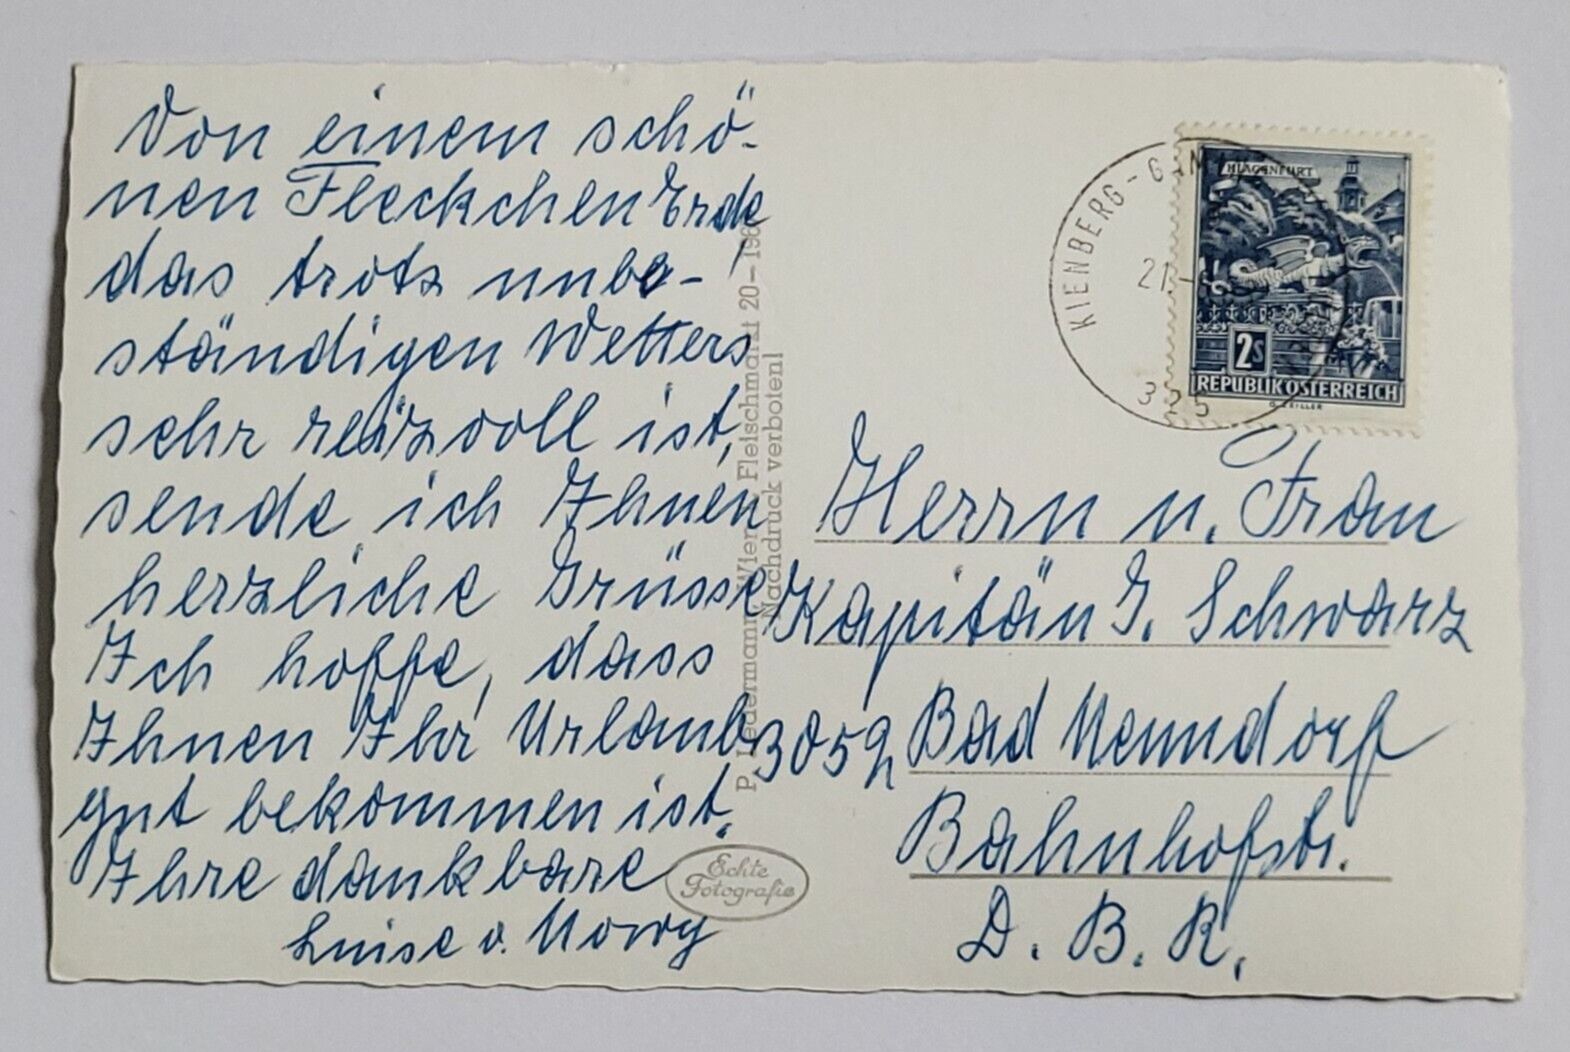 Von einem schö-
nen Fleckchen Erde
das trotz unbe-
ständigen Wetters
sehr reizvoll ist,
sende ich Ihnen
herzliche Grüsse
Ich hoffe, dass
Ihnen Ihr Urlaub
gut bekommen ist.
Ihre dankbare
Luise v. Nowy
P. Ledermann, Wien, Fleischmarkt 20 - 196
Nachdruck verboten!
Echte
Fotografie
KIENBERG-GAM
21.
325
KLAGENFURT
2S
REPUBLIK ÖSTERREICH
Herrn u. Frau
Kapitän G. Schwarz
3052 Bad Nenndorf
Bahnhofstr.
D. B. R.